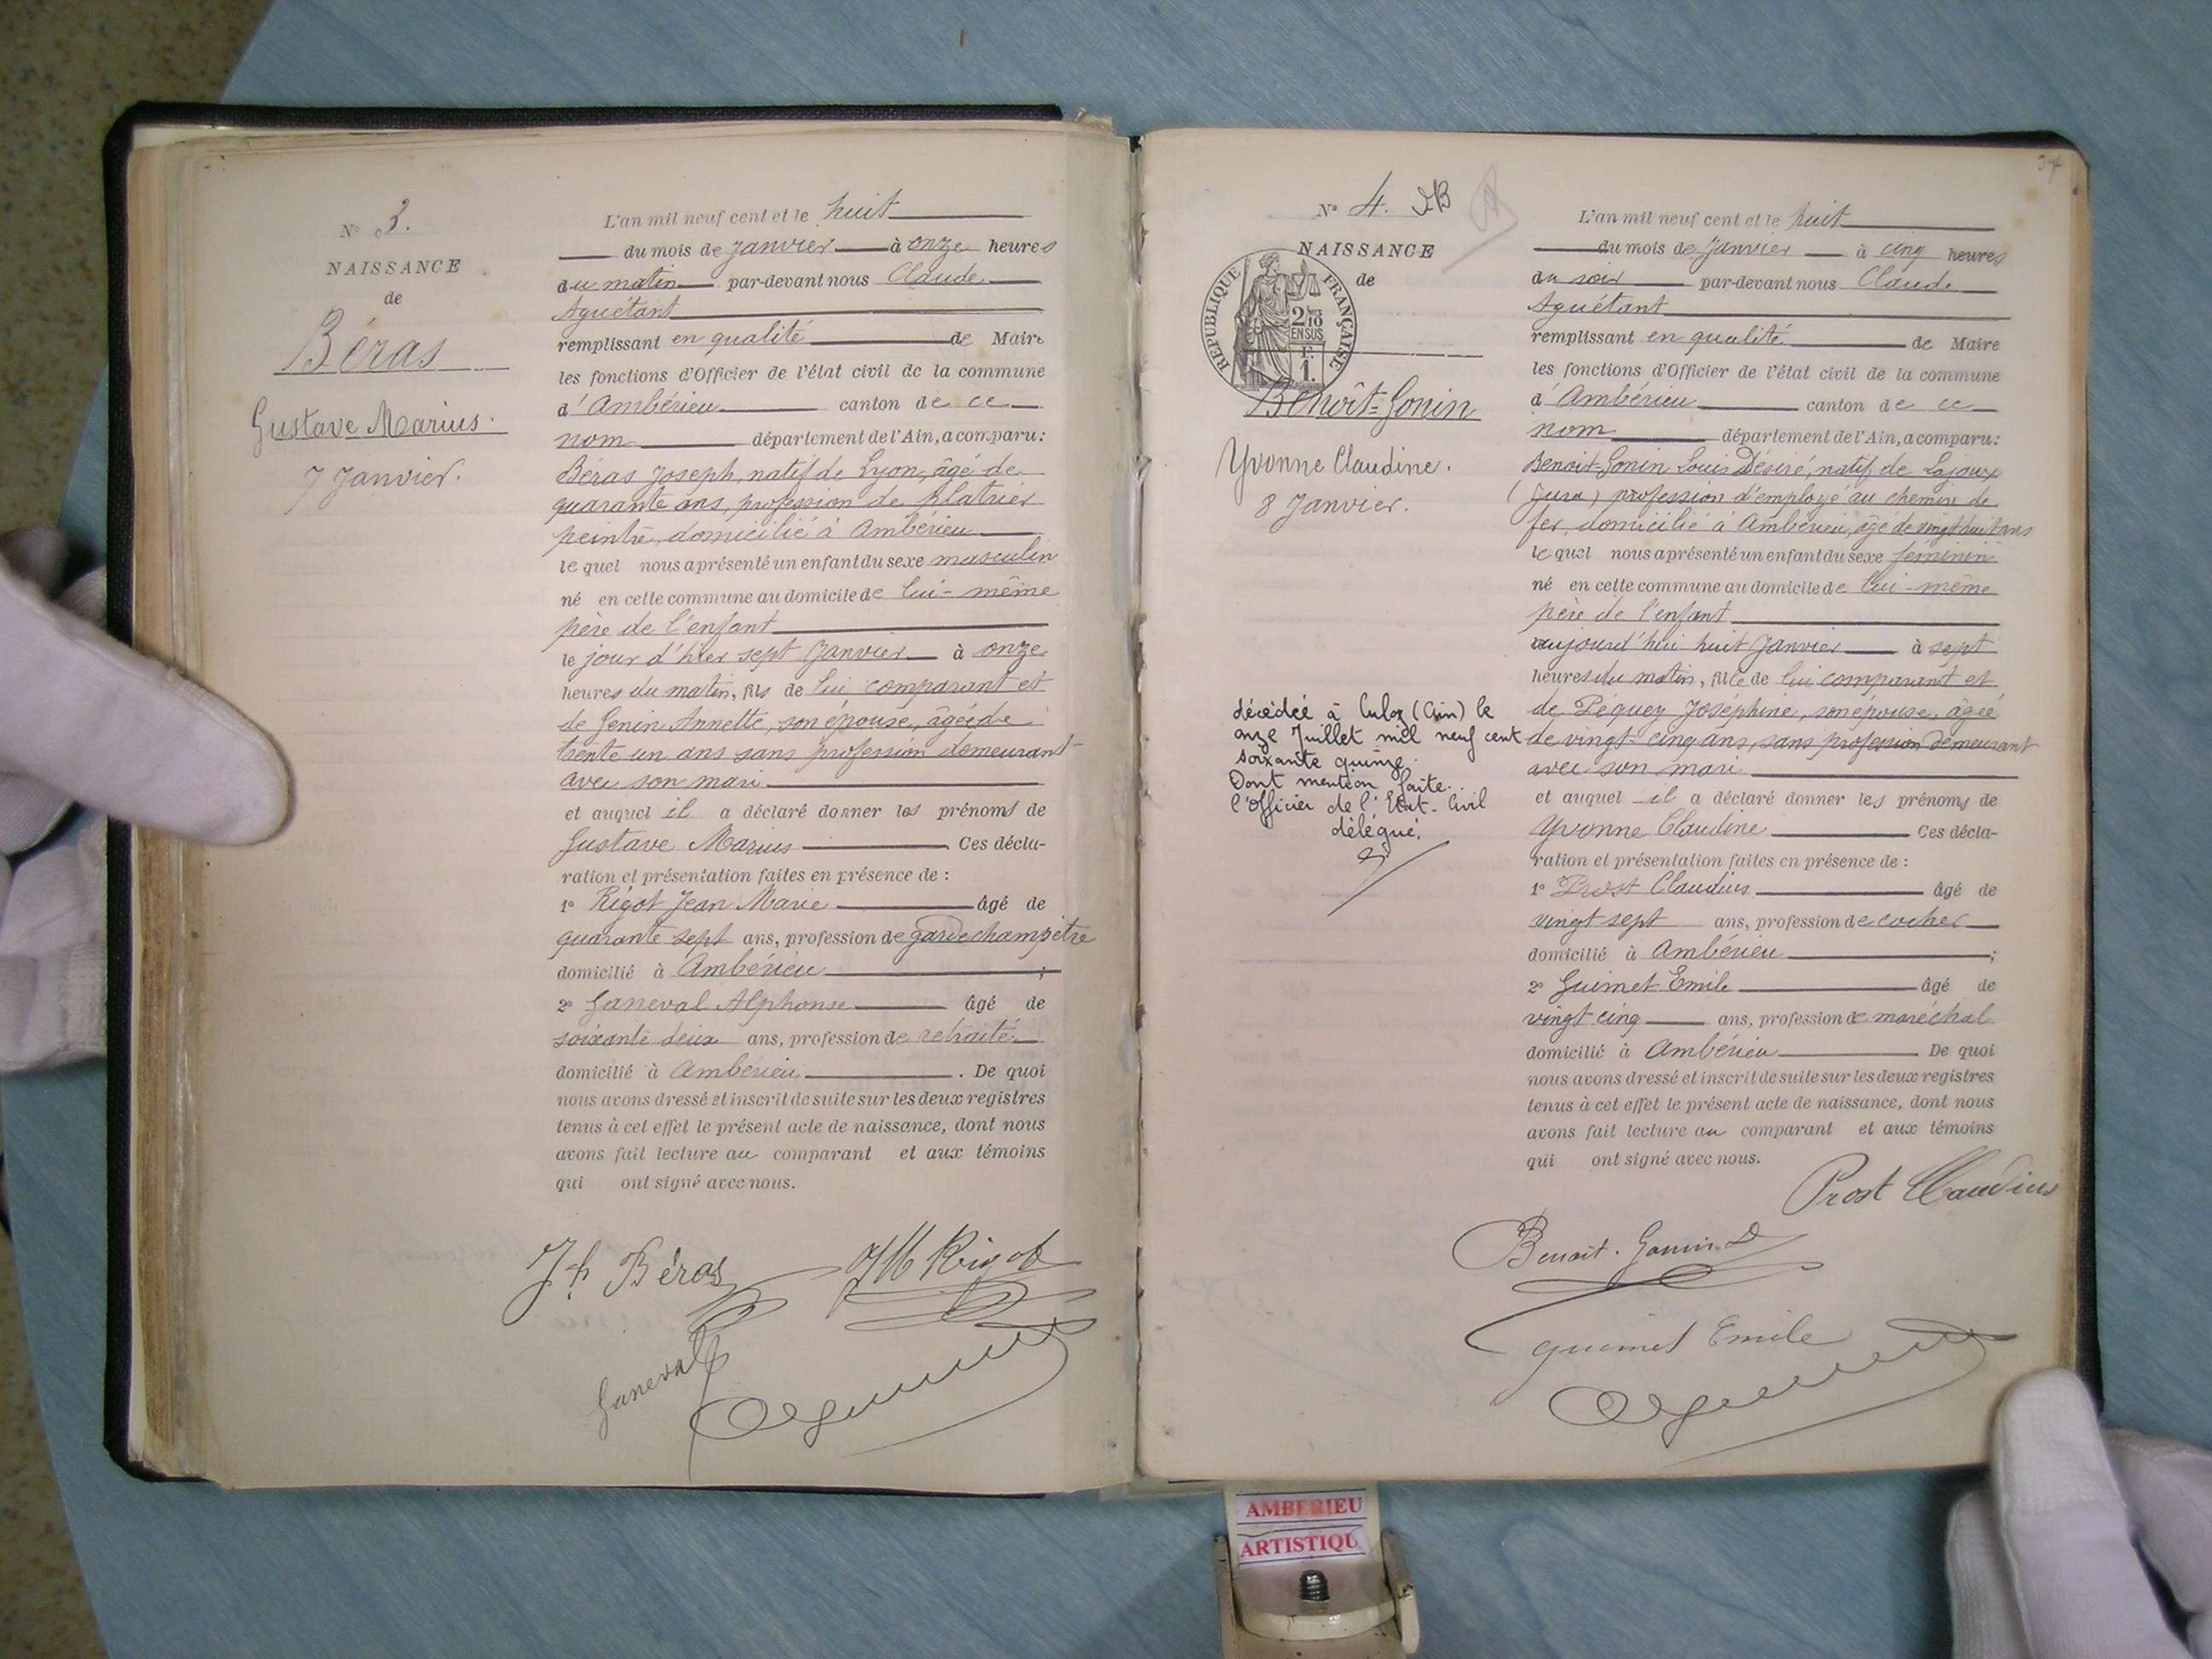 N° 3.
NAISSANCE
de
Béras
Gustave Marius.
7 Janvier.
L'an mil neuf cent et le huit
du mois de Janvier à onze heures
du matin par-devant nous Claude
Aguétant
remplissant en qualité de Maire
les fonctions d'Officier de l'état civil de la commune
d'Ambérieu canton de ce
nom département de l'Ain, a comparu:
Béras Joseph, natif de Lyon, âgé de
quarante ans, profession de platrier
peintre, domicilié à Ambérieu
le quel nous a présenté un enfant du sexe masculin
né en cette commune au domicile de lui-même
père de l'enfant
le jour d'hier sept Janvier à onze
heures du matin, fils de lui comparant et
de Genin Annette, son épouse, âgée de
trente un ans sans profession demeurant
avec son mari
et auquel il a déclaré donner les prénoms de
Gustave Marius Ces décla-
ration et présentation faites en présence de :
1° Rigot Jean Marie âgé de
quarante sept ans, profession de garde champêtre
domicilié à Ambérieu ;
2° Ganeval Alphonse âgé de
soixante deux ans, profession de retraité
domicilié à Ambérieu . De quoi
nous avons dressé et inscrit de suite sur les deux registres
tenus à cet effet le présent acte de naissance, dont nous
avons fait lecture au comparant et aux témoins
qui ont signé avec nous.
Jh Béras JM Rigot
Ganeval
34
N° 4.
NAISSANCE
de
REPUBLIQUE FRANÇAISE
2/10
EN SUS
F.
1.
Benoît-Gonin
Yvonne Claudine.
8 Janvier.
décédée à Culoz (Ain) le
onze Juillet mil neuf cent
soixante quinze.
Dont mention faite.
l'Officier de l'Etat-Civil
délégué.
L'an mil neuf cent et le huit
du mois de Janvier à cinq heures
du soir par-devant nous Claude
Aguétant
remplissant en qualité de Maire
les fonctions d'Officier de l'état civil de la commune
d'Ambérieu canton de ce
nom département de l'Ain, a comparu:
Benoit-Gonin Louis Désiré, natif de Lajoux
(Jura) profession d'employé au chemin de
fer, domicilié à Ambérieu, âgé de vingt huit ans
le quel nous a présenté un enfant du sexe féminin
né en cette commune au domicile de lui-même
père de l'enfant
aujourd'hui huit Janvier à sept
heures du matin, fille de lui comparant et
de Péquey Joséphine, son épouse, âgée
de vingt-cinq ans, sans profession demeurant
avec son mari
et auquel il a déclaré donner les prénoms de
Yvonne Claudine Ces décla-
ration et présentation faites en présence de :
1° Prost Claudius âgé de
vingt sept ans, profession de cocher
domicilié à Ambérieu ;
2° Guimet Emile âgé de
vingt cinq ans, profession de maréchal
domicilié à Ambérieu De quoi
nous avons dressé et inscrit de suite sur les deux registres
tenus à cet effet le présent acte de naissance, dont nous
avons fait lecture au comparant et aux témoins
qui ont signé avec nous.
Prost Claudius
Benoit. Gonin. D
guimet Emile
AMBERIEU
ARTISTIQU